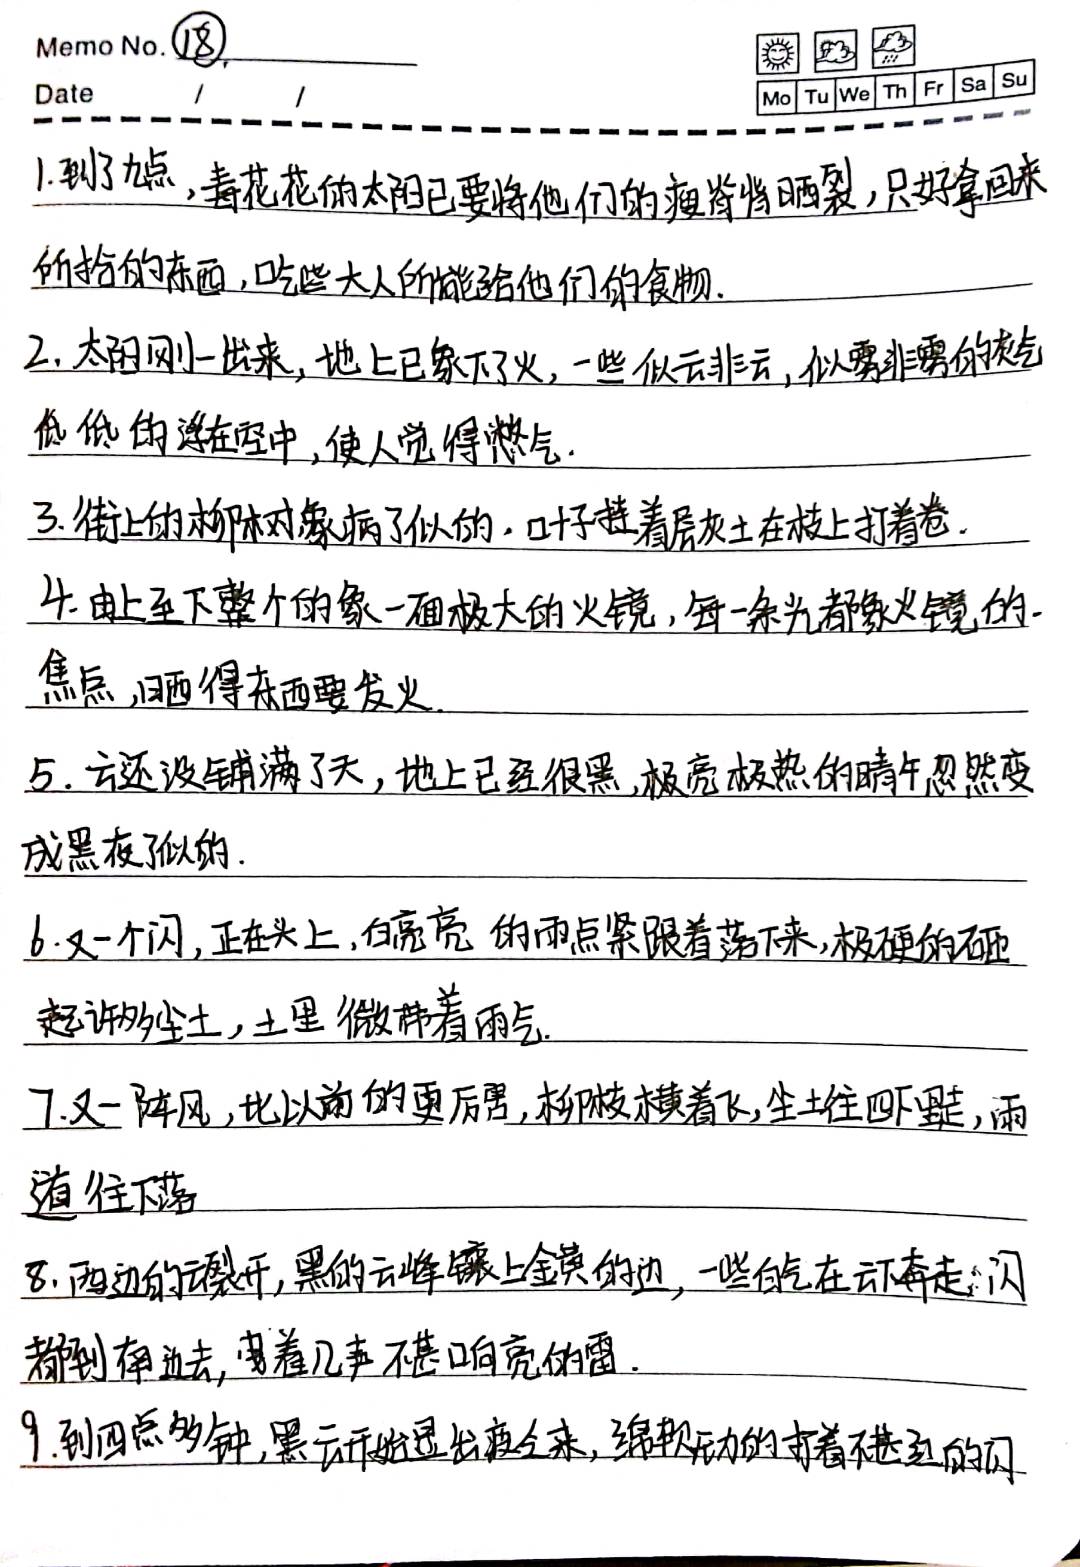 Memo No. 18.
Date / /
Mo Tu We Th Fr Sa Su
1.到了九点,毒花花的太阳已要将他们的瘦脊背晒裂,只好拿回来
所拾的东西,吃些大人所能给他们的食物.
2.太阳刚一出来,地上已象下了火,一些似云非云,似雾非雾的灰气
低低的浮在空中,使人觉得憋气.
3.街上的柳树象病了似的.叶子挂着层灰土在枝上打着卷.
4.由上至下整个的象一面极大的火镜,每一条光都象火镜的-
焦点,晒得东西要发火.
5.云还没铺满了天,地上已经很黑,极亮极热的晴午忽然变
成黑夜了似的.
6.又一个闪,正在头上,白亮亮的雨点紧跟着落下来,极硬的砸
起许多尘土,土里微带着雨气.
7.又一阵风,比以前的更厉害,柳枝横着飞,尘土往四下里走,雨
道往下落
8.西边的云裂开,黑的云峰镶上金黄的边,一些白气在云下奔走;闪
都到南边去,曳着几声不甚响亮的雷.
9.到四点多钟,黑云开始显出疲乏来,绵软无力的打着不甚红的闪